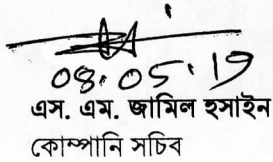 08.05.19
এস. এম. জামিল হুসাইন
কোম্পানি সচিব